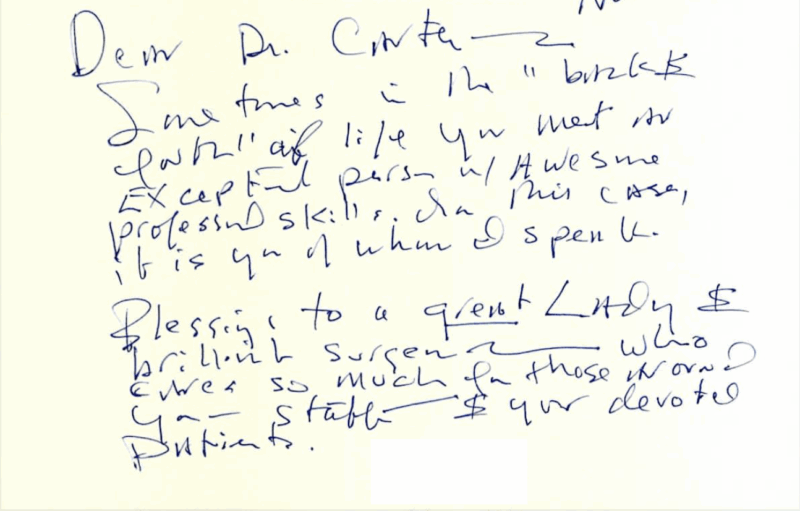 Dear Dr. Carter —
Sometimes in the "back &
forth" of life you meet an
Exceptional person w/ Awesome
professional skills. In this case,
it is you of whom I speak.
Blessings to a great Lady &
brilliant surgeon — who
cares so much for those around
you — staff — & your devoted
patients.